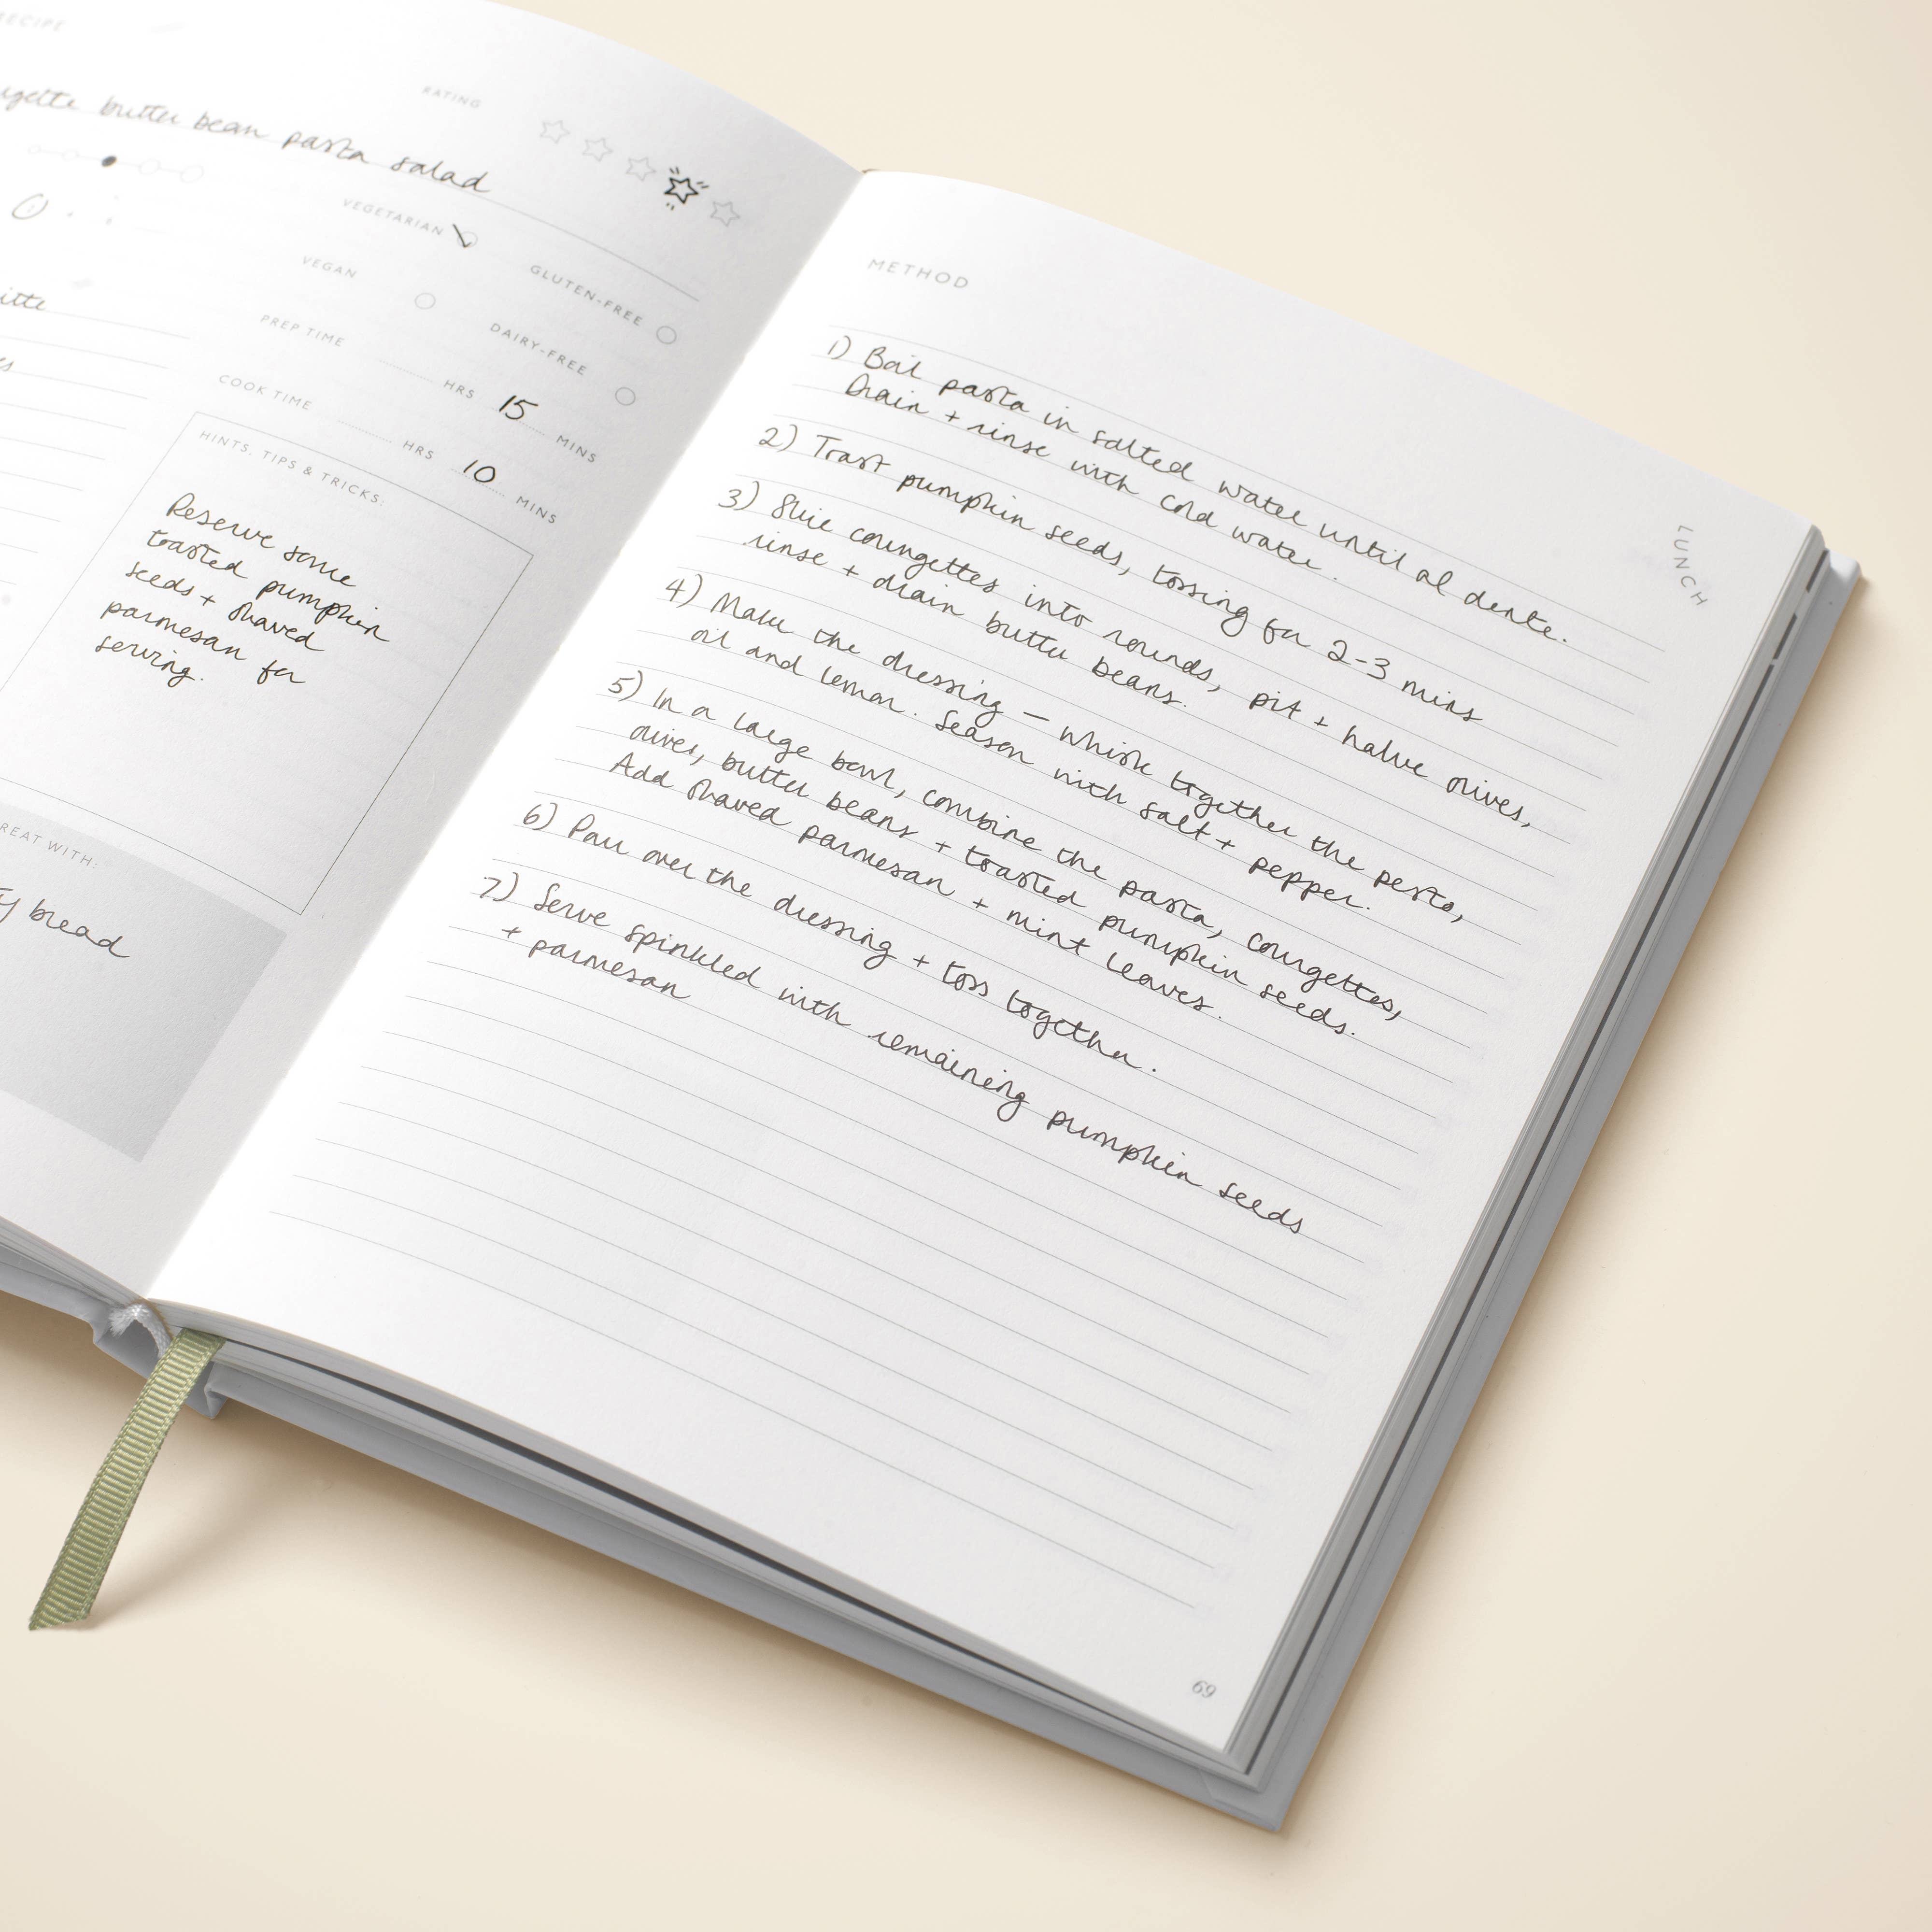 RECIPE
butter bean pasta salad
RATING
VEGETARIAN
GLUTEN-FREE
VEGAN
DAIRY-FREE
PREP TIME HRS 15 MINS
COOK TIME HRS 10 MINS
HINTS, TIPS & TRICKS:
Reserve some
toasted pumpkin
seeds + shaved
parmesan for
serving.
bread
METHOD
1) Boil pasta in salted water until al dente.
Drain + rinse with cold water.
2) Toast pumpkin seeds, tossing for 2-3 mins
3) Slice courgettes into rounds, pit + halve olives,
rinse + drain butter beans.
4) Make the dressing – whisk together the pesto,
oil and lemon. Season with salt + pepper.
5) In a large bowl, combine the pasta, courgettes,
olives, butter beans + toasted pumpkin seeds.
Add shaved parmesan + mint leaves.
6) Pour over the dressing + toss together.
7) Serve spinkled with remaining pumpkin seeds
+ parmesan
LUNCH
69